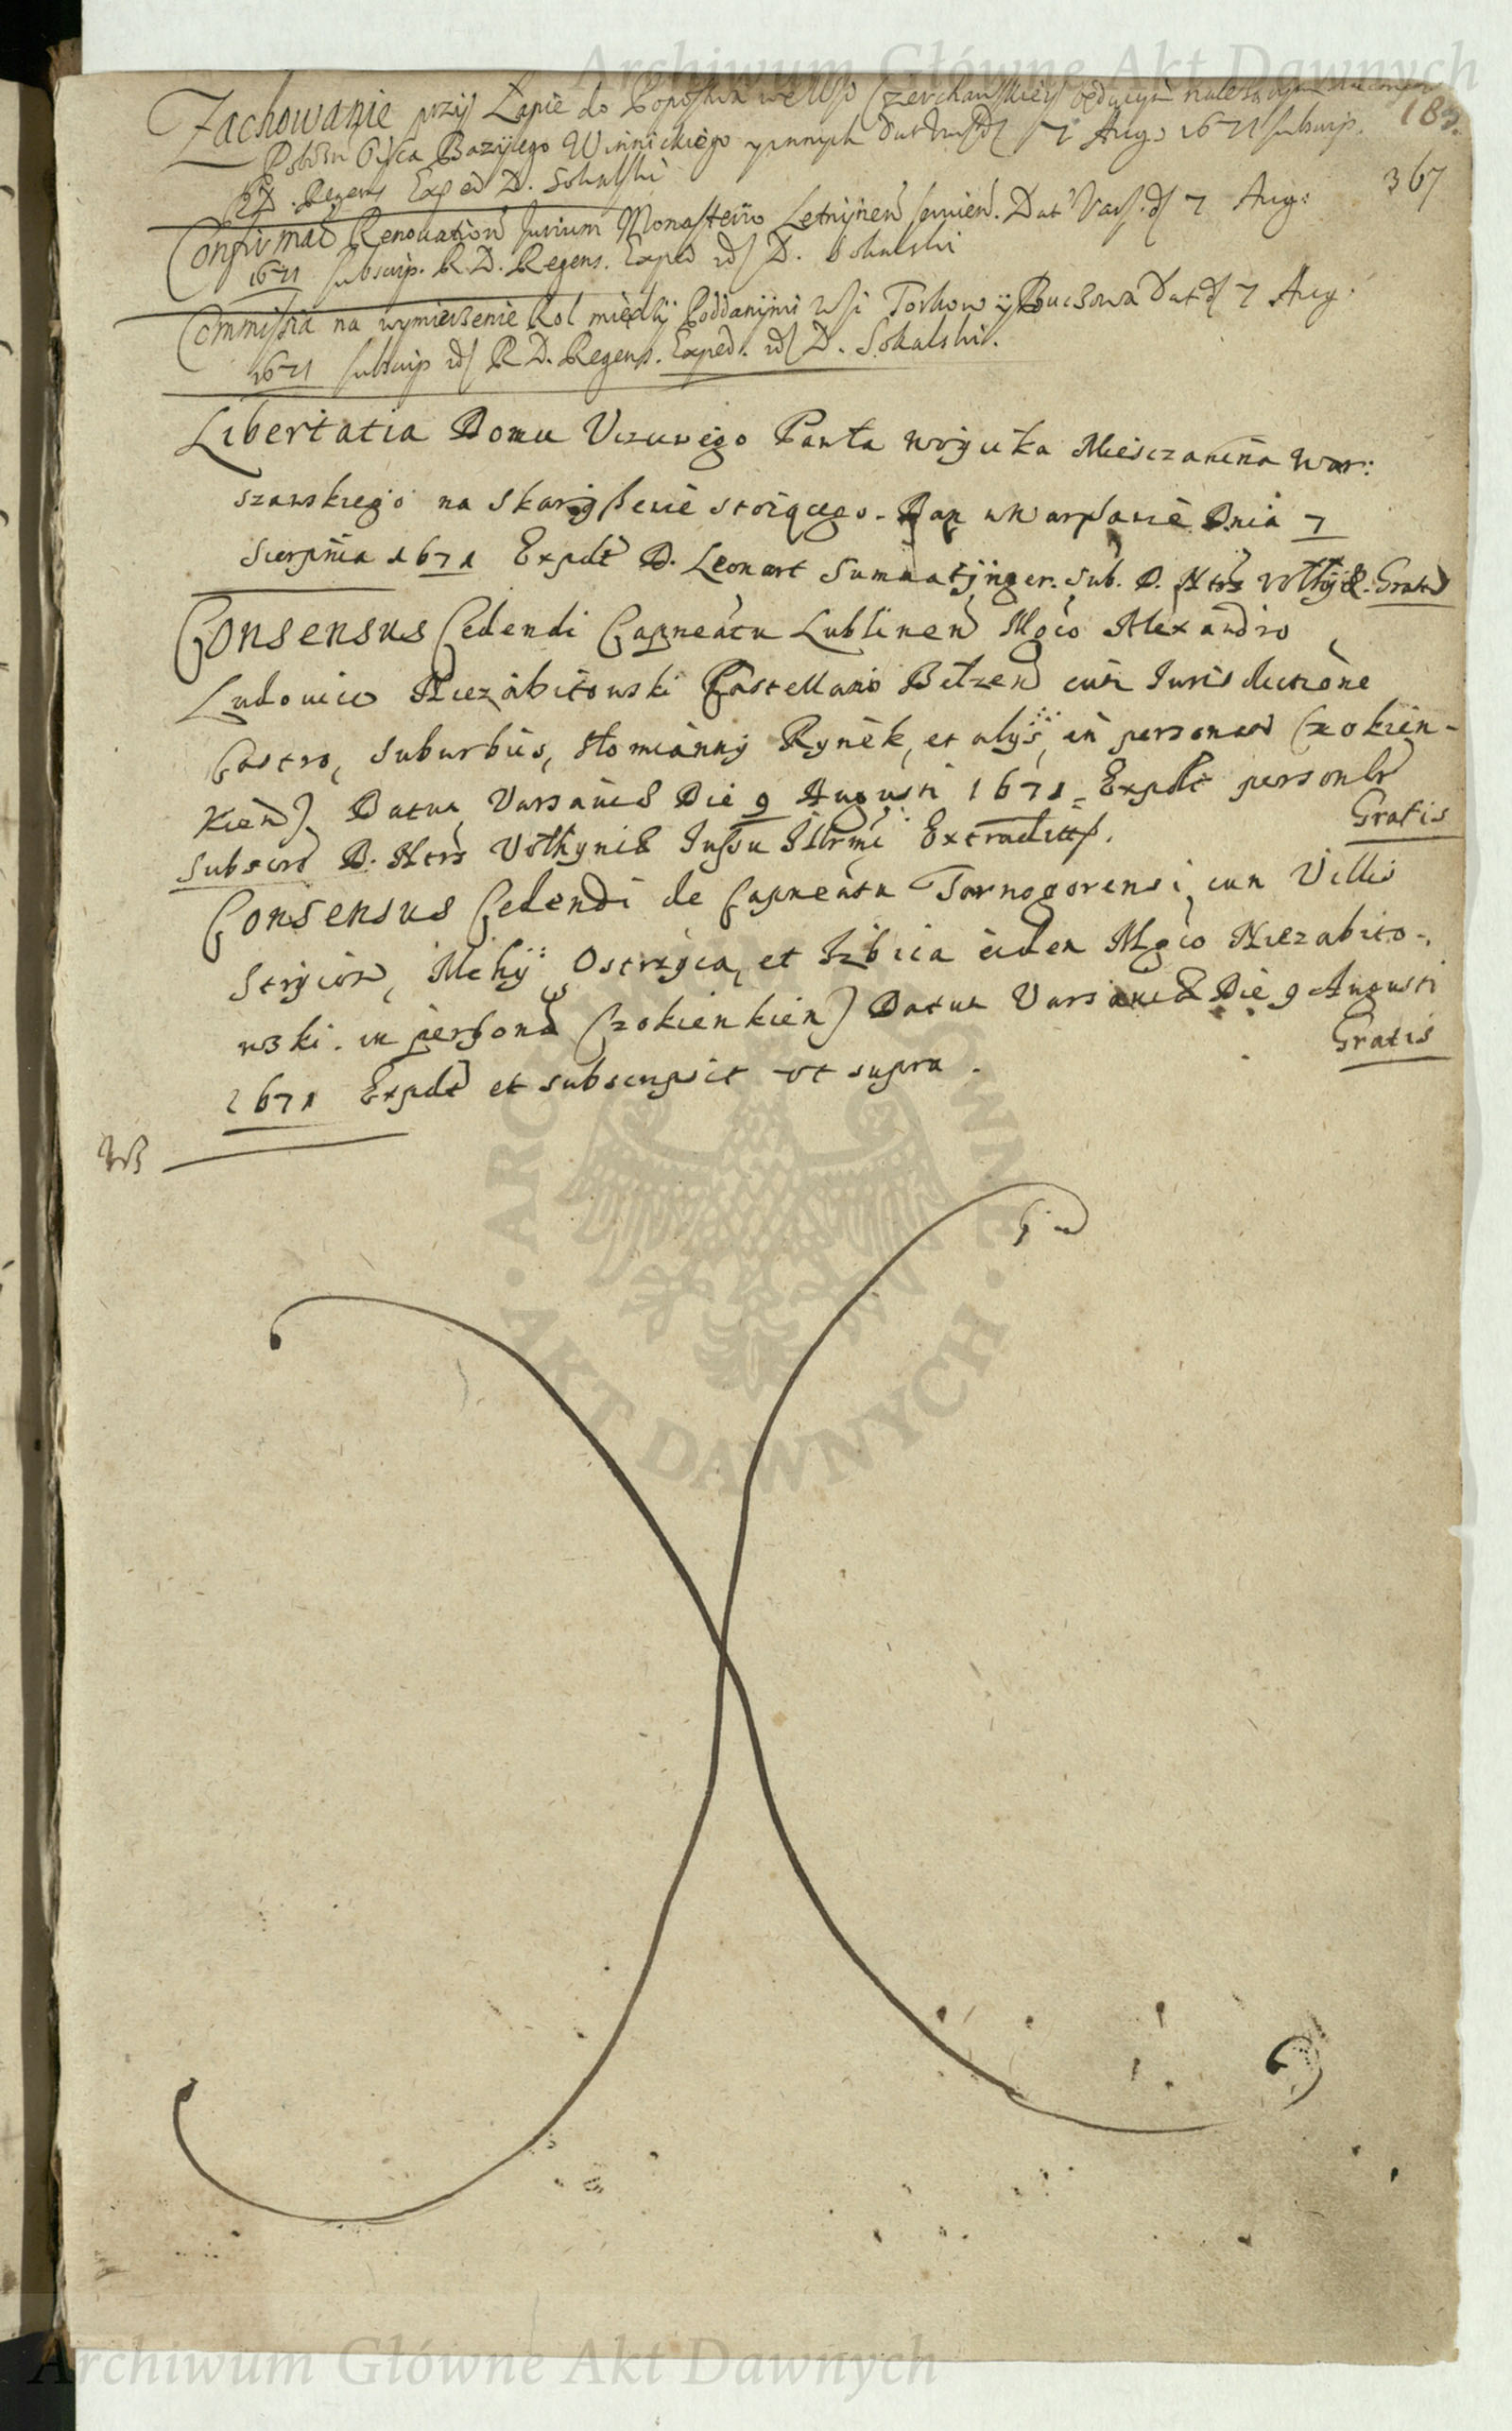 Archiwum Główne Akt Dawnych
Zachowanie przy Łapie do Popostwa we Wsi Czerchawskiey będącym
183.
Oyca Bazylego Winnickiego y innych Dat Vars d 7 Aug. 1671 subscrip.
367
R D. Regens Exped D. Sokalski
Confirmaõ Renouationũ Jurium Monasterio Letnynen Dat Vars. d 7 Aug:
1671 subscrip. R. D. Regens. Exped id D. Sokalski
Commissia na wymierzenie Rol między Poddanymi Wsi Torhow y Buczowa Dat d 7 Aug.
1671 subscrip id R D. Regens. Exped. id D. Sokalski.
Libertatia Domu Uczciwego Pawła Woycika Miesczanina War:
szawskiego na Skaryszewie stoiącego. Dan w Warszawie Dnia 7
Sierpnia 1671 Expdt D. Leonart Sub. D. Ntrs Volhyæ. Gratis
Consensus Cedendi Capneatu Lublinen Mgco Alexandro
Ludovico Niezabitowski Castellano Belzen cum Jurisdictione
Castro, Suburbiis, Słomianny Rynek, et alys, in personam Czokien-
kien) Datum Varsaviæ Die 9 Augusti 1671 Expdt personlr
Gratis
Subscrd D. Ntrs Volhyniæ Jussu Illrmi Extradittß.
Consensus Cedendi de Capneatu Tarnogorensi, cum Villis
Stryiow, Mchy Ostrzyca, et Izbica eidem Mgco Niezabito-
wski. in persona Czokienkien) Datum Varsaviæ Die 9 Augusti
Gratis
1671 Expdt et subscripsit ut supra.
ARCHIWUM GŁÓWNE · AKT DAWNYCH ·
Archiwum Główne Akt Dawnych